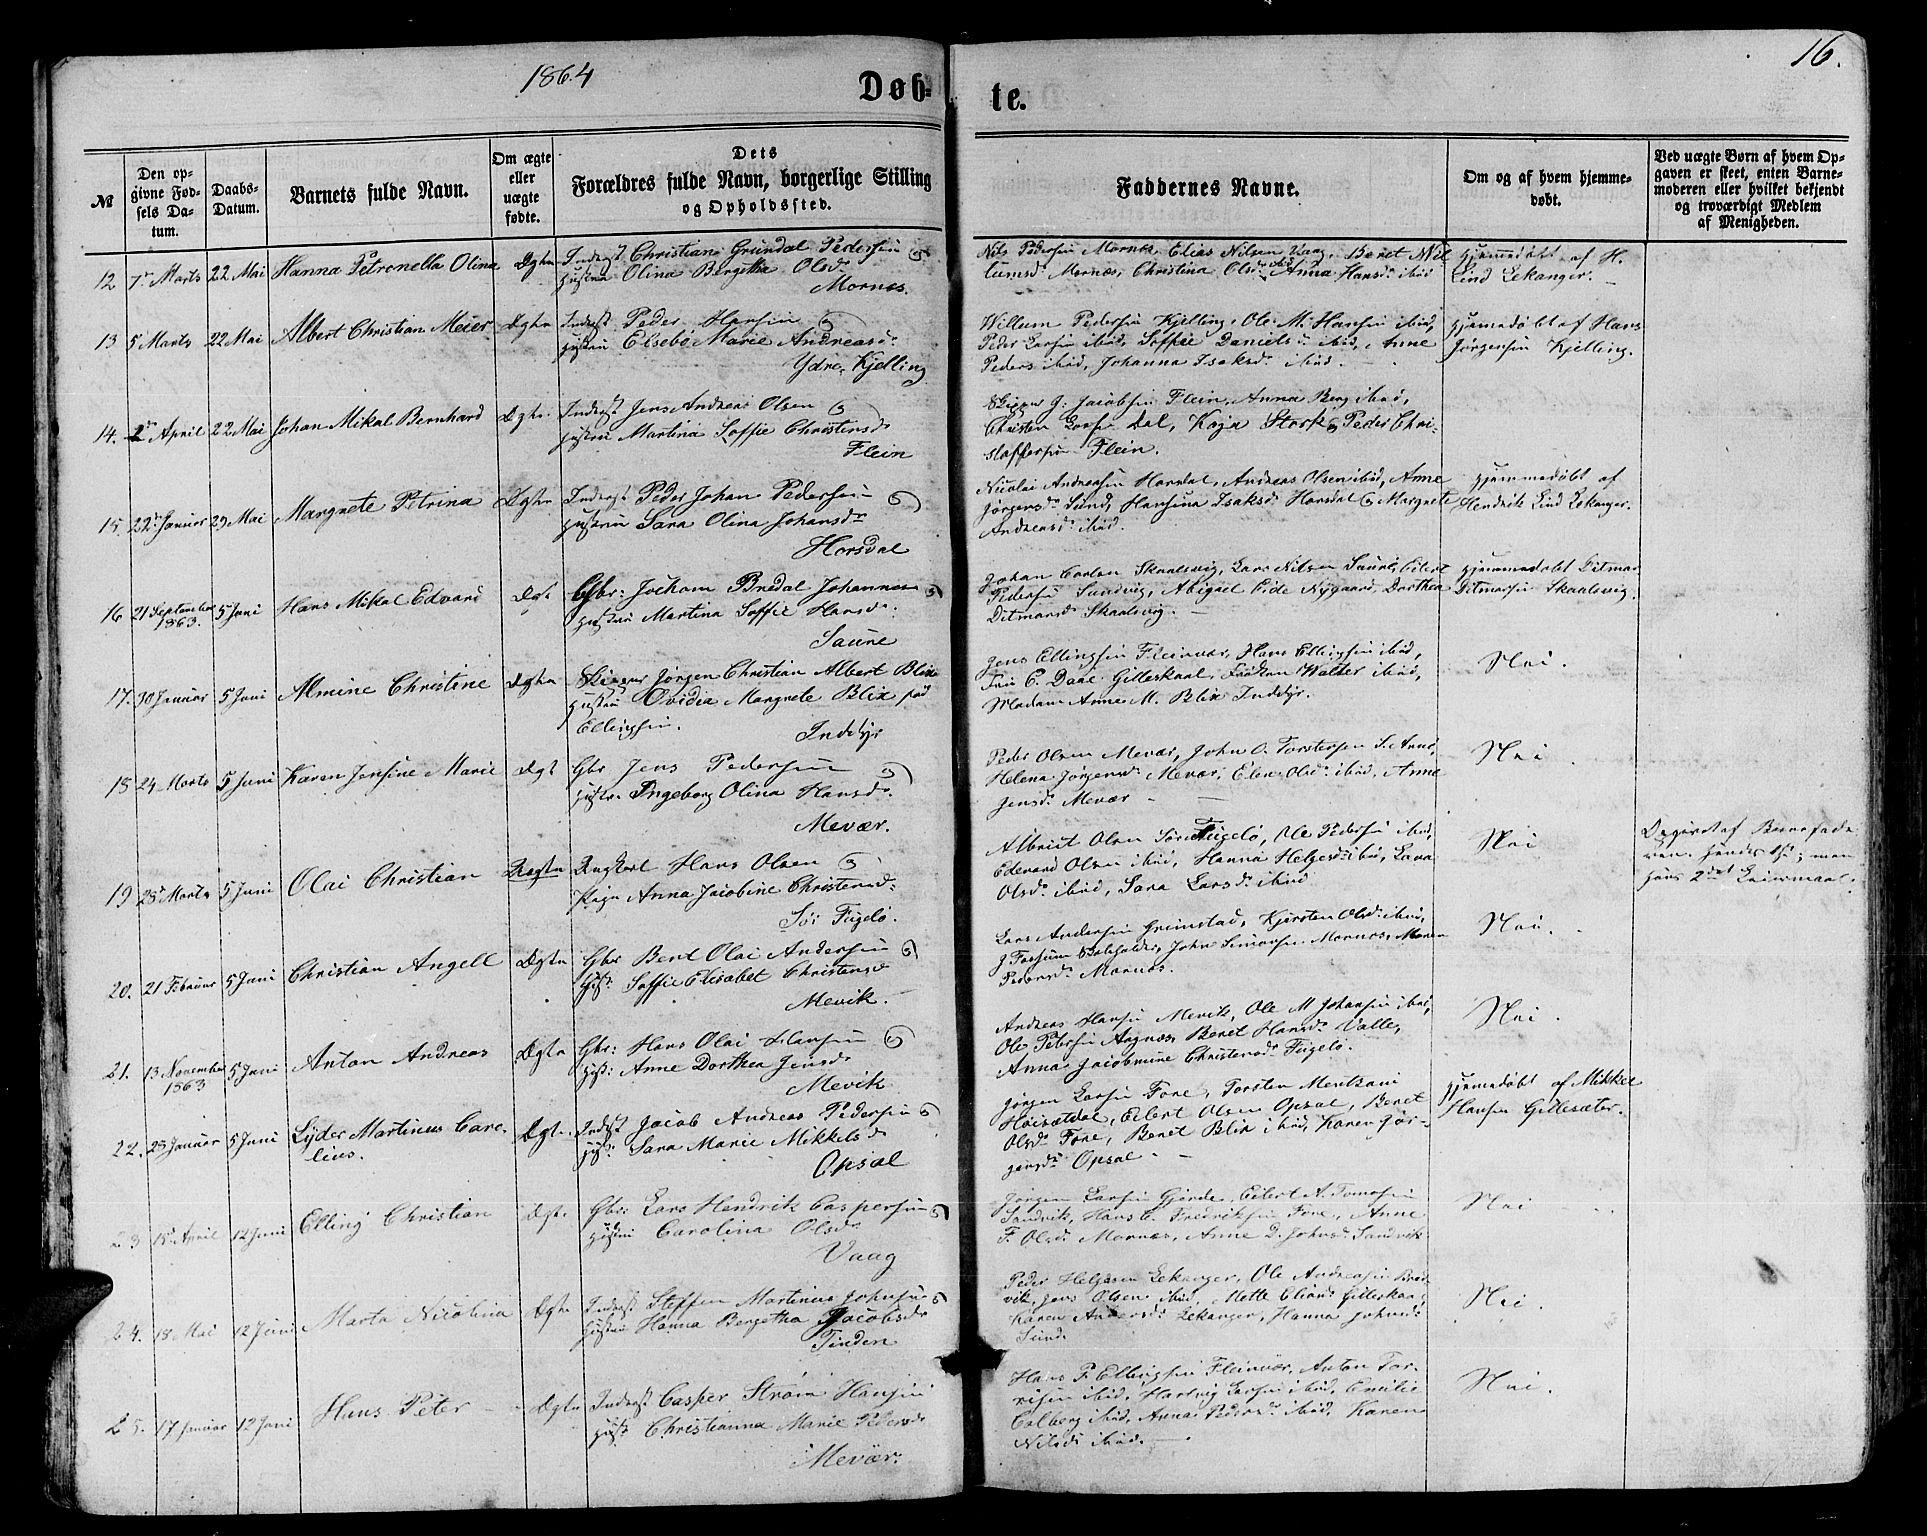 1864
Døb-
te.
16.
№
Den op-
givne Fød-
sels Da-
tum.
Daabs-
Datum.
Barnets fulde Navn.
Om ægte
eller
uægte
fødte.
Dets
Forældres fulde Navn, borgerlige Stilling
og Opholdssted.
Faddernes Navne.
Om og af hvem hjemme-
døbt.
Ved uægte Børn af hvem Op-
gaven er skeet, enten Barne-
moderen eller hvilket bekjendt
og troværdigt Medlem
af Menigheden.
12 7de Marts 22 Mai Hanna Petronella Olina Ægte
Inderst Christian Grundal Pedersen
Hustru Olina Bergitha Olsdr
Mornes.
Nils Pedersen Mornes, Elias Nilsen Vaag, Beret Nil
Mornes, Christina Olsdr ibid Anna Hansdr ibid
Hjemmedøbt af H.
Lind Lekanger.
13 5 Marts 22 Mai Albert Christian Meier Ægte
Inderst Peder Hansen
Hustru Elsebe Marie Andreasdr
Ydre Kjelling
Willum Pedersen Kjelling, Ole M. Hansen ibid,
Peder Larsen ibid, Soffie Danielsdr ibid, Anne
Peders ibid, Johanna Isaksdr ibid.
Hjemmedøbt af Hans
Jørgensen Kjelling.
14. 2 April 22 Mai Johan Mikal Bernhard Ægte
Inderst Jens Andreas Olsen
Hustru Martina Soffie Christensdr
Flein
Skipper J. Jacobsen Flein, Anna Berg ibid,
Christen Larsen Dal, Kaja Stork, Peder Chri-
stoffersen Flein.
15 22 Januar 29 Mai Margrete Petrina Ægte
Inderst Peder Johan Pedersen
Hustru Sara Olina Johansdr
Horsdal
Nicolai Andreasen Horsdal, Andreas Olsen ibid, Anne
Jørgensdr Sund, Hansina Isaksdr Horsdal & Margrete
Andreasdr ibid.
Hjemmedøbt af
Hendrik Lind Lekanger.
16 21 September 1863. 5 Juni Hans Mikal Edvard Ægte
Gbr: Jochom Bredal Johannesen
Hustru Martina Soffie Hansdr
Saure
Johan Carlsen Skaalsvig, Lars Nilsen Saure, Eilert
Pedersen Sundvig, Abigael Eide Nygaard, Dorthea
Ditmarsdr Skaalsvig.
Hjemmedøbt Ditmar
Ditmarsen Skaalsvig.
17. 30 Januar 5 Juni Almine Christine Ægte
Skipper Jørgen Christian Albert Blix
Hustru Ovidia Margrete Blix født
Ellingsen.
Inddyr
Jens Ellingsen Fleinvær, Hans Ellingsen ibid,
Frii C. Daae Gilleskaal, Frøken Walter ibid,
Madam Anne M. Blix Inddyr.
Nei.
18 24 Marts 5 Juni Karen Jensine Marie Ægte
Gbr Jens Pedersen
Hustru Ingeborg Olina Hansdr
Mevær.
Peder Olsen Mevær, John O. Torstensen S. Arnø,
Helena Jørgensdr Mevær, Elen Olsdr ibid, Anne
Jensdr Mevær
Nei
19 28 Marts 5 Juni Olai Christian Uægte
Ungkarl Hans Olsen
Pige Anna Jacobine Christensdr
Sør Fugelø.
Albrigt Olsen Sør Fugelø, Ole Pedersen ibid,
Edevard Olsen ibid, Hanna Helgesdr ibid, Lava
Olsdr ibid, Sara Larsdr ibid
Nei
Opgivet af Barnefade-
ren. hendes 1ste; men
hans 2det Leiermaal.
20. 21 Februar 5 Juni Christian Angell Ægte
Gbr Bent Olai Andersen
Hust: Soffie Elisabet Christensdr
Mevik.
Lars Andersen Grimstad, Kjersten Olsdr ibid,
Johan Simonsen Mornes, Maren
Pedersdr Mornes.
Nei.
21. 13 November 1863 5 Juni Anton Andreas Ægte
Gbr: Hans Olai Hansen
Hust: Anne Dorthea Jensdr
Mevik
Andreas Hansen Mevik, Ole M Johansen ibid,
Ole Petersen Aagnes, Beret Hansdr Valle,
Anna Jacobmine Christensdr Fugelø.
Nei.
22. 25 Januar 5 Juni Lyder Martinus Care-
lius. Ægte.
Inderst Jacob Andreas Pedersen
Hust: Sara Marie Mikkelsdr
Opsal
Jørgen Larsen Fore, Torsten Mentzoni
Høisætdal, Eilert Olsen Opsal, Beret
Olsdr Fore, Beret Blix ibid, Karen Jør-
gensdr Opsal.
Hjemmedøbt af Mikkel
Hansen Gillesæter.
23 15 April 12 Juni Elling Christian Ægte.
Gbr: Lars Hendrik Caspersen
Hustru Carolina Olsdr
Vaag
Jørgen Larsen Gjerde, Eilert A. Tomasen
Sandvik, Hans C. Fredriksen Fore, Anne
F. Olsdr Mornes, Anne D. Johnsdr Sandvik
Nei
24. 18 Mai 12 Juni Marta Nicolina Ægte
Inderst Steffen Martinus Johnsen
Hustru Hanna Bergetha Jacobsdr
Tinden
Peder Helgesen Lekanger, Ole Andreasen Bred
vik, Jens Olsen ibid, Mette Eliasdr Gilleskaa,
Karen Andersdr Lekanger, Hanna Johnsdr
Sund.
Nei.
25. 17 Januar 12 Juni Hans Peter Ægte
Inderst Casper Strøm Hansen
Hust Christianna Marie Pedersdr
Mevær.
Hans P. Ellingsen Fleinvær, Anton Tor-
risen ibid, Hartvig Larsen ibid, Emilie
Colberg ibid, Anna Pedersdr ibid, Karen
Nilsdr ibid.
Nei.